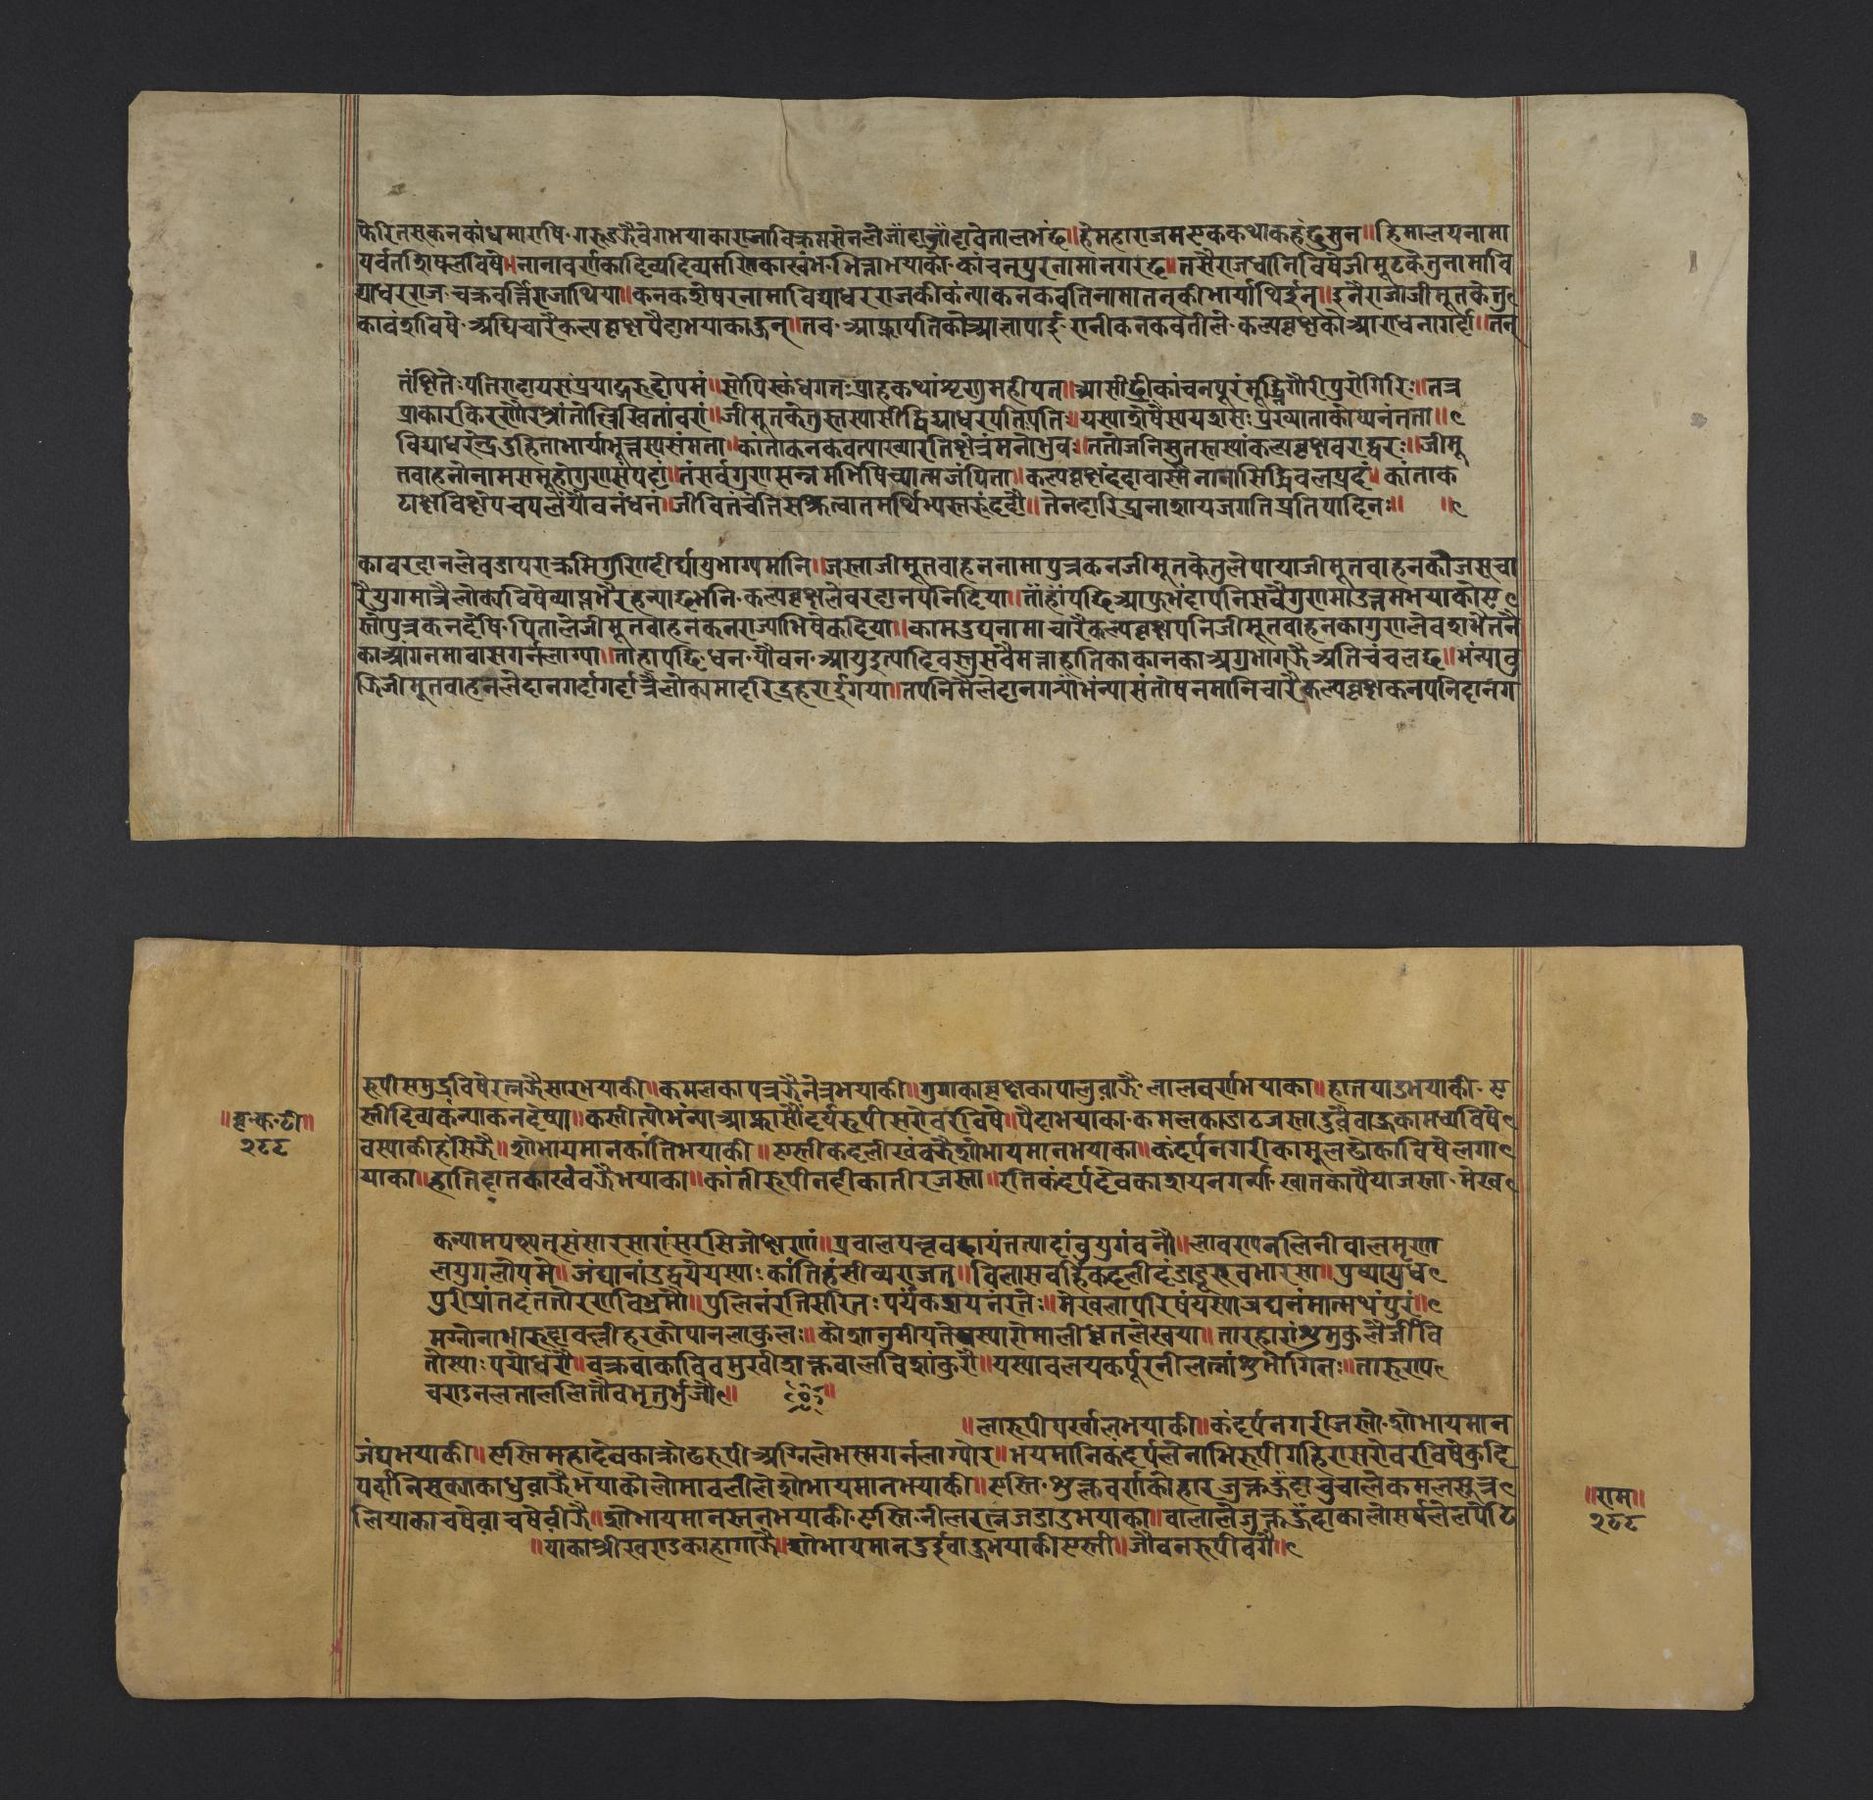 फेरितसकनकांधमाराषि गरुडझैवेगभयाकाराजाविक्रमसेनलेजांदाजांदावेतालभंछ॥हेमहाराजमएककथाकहंछुसुन॥हिमालयनामा
पर्वतशिषलविषे॥नानावर्णकादिव्यदिव्यमस्तिकाखंभ भित्ताभयाको कांचनपुरनामानगरछ॥तसैराजधानिविषेजीमूटकेतुनामावि
द्याधरराज चक्रवर्त्तिराजाथिया॥कनकशेषरनामाविद्याधरराजकीकंन्याकनकवतिनामातनकीभार्याथिईन्॥इनैराजाजीमूतकेतु
कावंशविषे अघिचारैकल्पवृक्षपैदाभयाकाछन्॥तव आफ्नापतिकोआज्ञापाई रानीकनकवतीले कल्पवृक्षकोआराधनागर्दा॥तन्
तंक्षितेःपतिरादायसंप्रयाद्गरुडोपमं॥सोपिस्कंधगतःप्राहकथांशृणुमहीपत॥आसीद्रौकांचनपुरंमूर्द्ध्निगौरीपुरोगिरेः॥तत्र
प्राकारकिरणैरश्रांतोल्लिखितांवरां॥जीमूतकेतुस्तस्यासीद्विद्याधरपतिपतिः॥यस्याशेषैस्वायशसः प्रख्याताकाप्यनंतता॥
विद्याधरंन्द्रदुहिताभार्याभूत्तस्यसंमता॥कांताकनकवत्याख्यारतिश्चेत्रंमनोभुवः॥ततोजनिसुतस्तस्यांकल्पवृक्षवराद्वरः॥जीमू
तवाहनोनामसमूहोगुणसंपदां॥तंसर्वगुणसन्नमभिषिच्यात्मजंपिता॥कल्पवृक्षंददावास्मैनानासिद्धिवलप्रदं॥कांताक
टाक्षविक्षेपचपलंयौवनंधनं॥जीवितंचेतिसश्रित्वातमर्थिभ्यस्तरुंददौ॥तेनदारिद्र्यनाशायजगतिप्रतिपादितः॥
कावरदानलेवडापराक्रमिगुणिदीर्घायुभाग्यमानि॥जस्ताजीमूतवाहननामापुत्रकनजीमूतकेतुलेपायाजीमूतवाहनकोजसचा
रैयुगमात्रैलोक्यविषेव्याप्तभैरहन्याछभनि कल्पवृक्षलेवरदानपनिदिया॥तांहांपछिआफुभंदापनिसर्वैगुणमाउत्तमभयाकोए
स्तोपुत्रकनदेषि पितालेजीमूतवाहनकनराज्याभिषेकदिया॥कामदुघनामाचारैकल्पवृक्षपनिजीमूतवाहनकागुणलेवशभैतनै
काआंगनमावासगर्नलाग्या॥तांहापछि धन यौवन आयुइत्यादिवस्तुसवैमत्ताहातिकाकानकाअग्रभागझैअतिचंचलछ॥भंन्यावु
झिजीमूतवाहनलेदानगर्दागर्दात्रैलोक्यमादरिद्रहराईगया॥तपनिमैलेदानगर्‍यांभंन्यासंतोषनमानिचारैकल्पवृक्षकनपनिदानग
॥वृ॰क॰टी॥
२८८
रुपीसमुद्रविषेरत्नझैसारभयाकी॥कमलकापत्रझैनेत्रभयाकी॥मुगाकावृक्षकापालुवाझै लालवर्णभयाका॥हातपाउभयाकी ए
स्तीदिव्यकंन्याकनदेष्या॥कस्तीत्योभंन्याआफ्नासौंदर्यरूपीसरोवरविषे॥पैदाभयाका कमलकाडाठजस्तादुवैवाहुकामध्यविषे
वस्याकीहंसिझै॥शोभायमानकांतिभयाकी॥एस्तीकदलीखंवझैशोभायमानभयाका॥कंदर्पनगरीकामूलढोकाविषेलगा
याका॥हात्तिदातकाखंवझैभयाका॥कांतीरूपीनदीकातीरजस्ता॥रतिकंदर्पदेवकाशयनगर्न्या खातकापैयाजस्ता मेख
कन्यामपश्यत्संसारसारांसरसिजेक्षणां॥प्रवालपल्लवछायंतत्पादांवुयुगंवनौ॥लावण्यनलिनीवालमृणा
लयुगलोपमे॥जंघानांउद्वयेयस्याः कांतिहंसीव्यराजत॥विलासवर्हिकदलीदंडादूरूवभारसा॥पुष्पायुध
पुरीप्रांतदंततोरणविभ्रमौ॥पुलिनंरतिसरितः पर्यंकशयनंरतेः॥मेखलापरिषंयस्याजघनंमात्मथंपुरं॥
मग्नोनाभीरुहावल्लीहरकोपानलाकुलः॥कोशानुमीयतेयस्यारोमालीधूतलेखया॥तारहारांशुमुकुलैर्जीवि
तौस्याः पयोधरौ॥चक्रवाकाविवमुखीशक्तवालविशांकुरौ॥यस्यावलयकर्पूरनीलत्नांशुभोगिनः॥तारुण्य
चराऽनलतालललितौवभृतुर्भुजौ॥
॥लारूपीपर्खालभयाकी॥कंदर्पनगरीजस्तो शोभायमान
जंघभयाकी॥एस्तिमहादेवकाक्रोधरूपीअग्निलेभस्मगर्नलाग्योर॥भयमानिकंदर्पलेनाभिरूपीगहिरासरोवरविषेकुदि
पर्दानिसक्याकाधुवाझैभयाकोलोमावलीलेशोभायमानभयाकी॥एस्ति शुक्लवर्णकोहारजुक्तहुंदाचुचालेकमलसूत्र
लियाकाचषेवाचषेवीझै॥शोभायमानस्तनभयाकी एस्ति नीलरत्नजडाउभयाका॥वालालेजुक्तहुंदाकालोसर्पलेलपेटि
॥याकाश्रीखराडकाहागाझै॥शोभायमानदुईवाहुभयाकीएस्ती॥जौवनरूपीवगै॥
॥राम॥
२८८